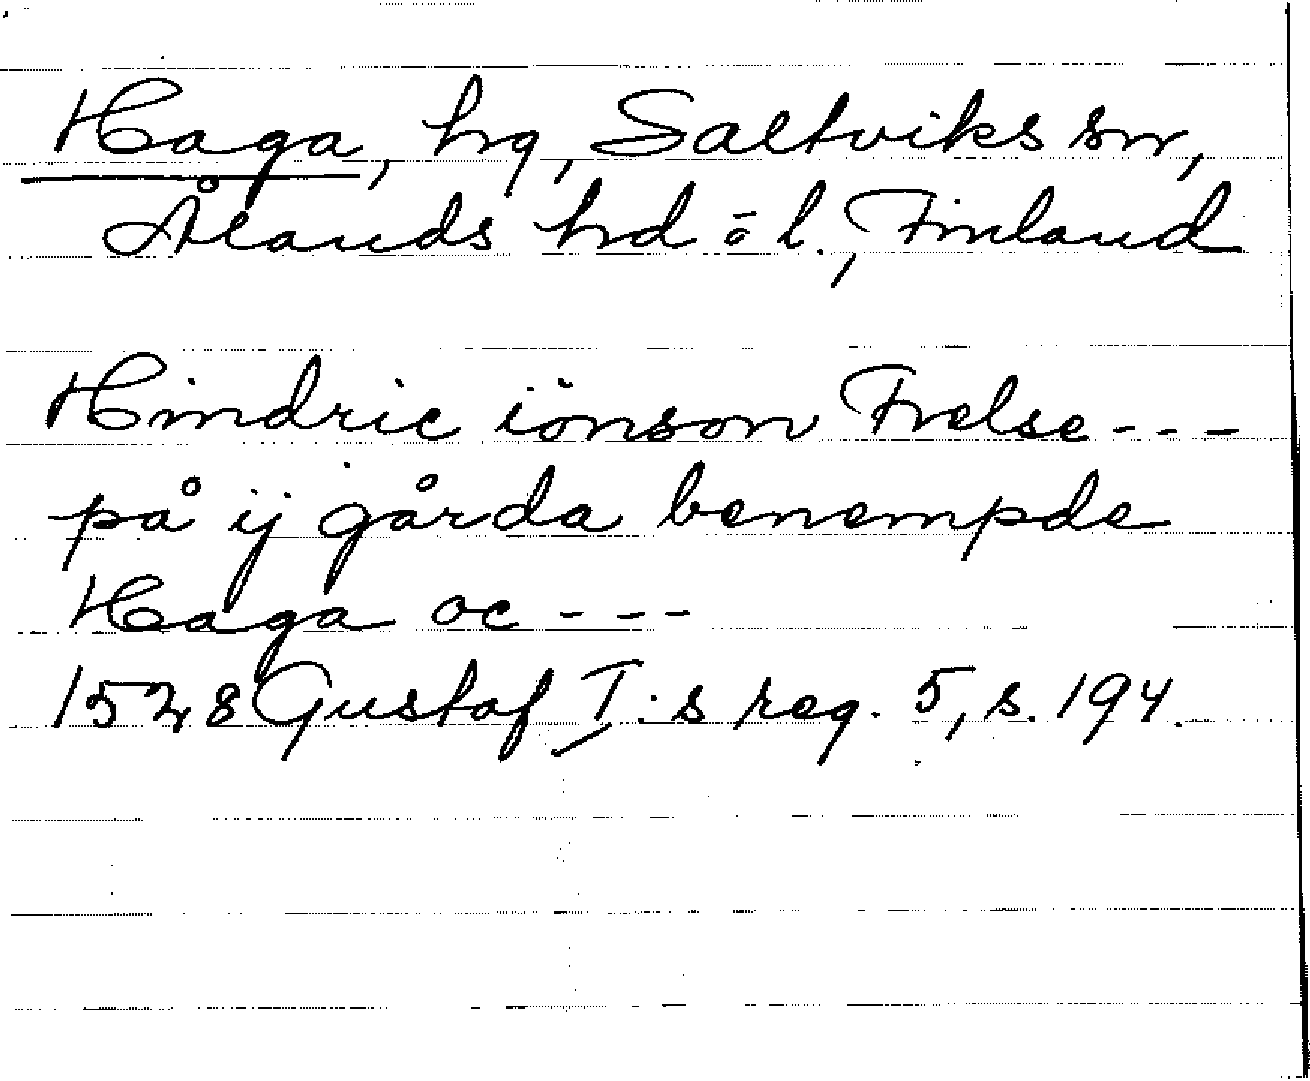 Haga, hg, Saltviks sn,
Ålands hd o l., Finland
Hindric iönson Frelse - - -
på ij gårda benempde
Haga oc - - -
1528 Gustaf I:s reg. 5, s. 194.